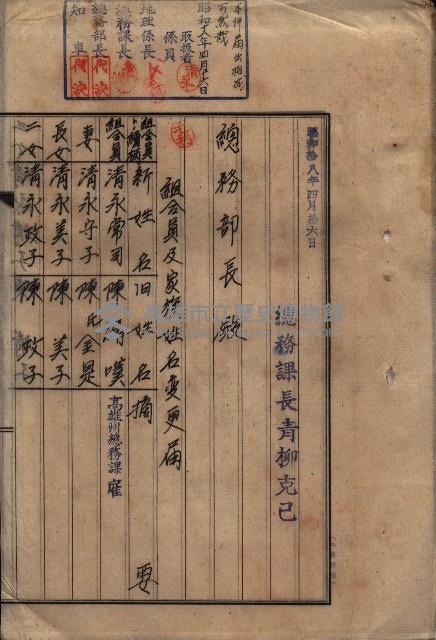 本件届出相成
可然哉
昭和十八年四月十六日
取扱者 清永
係員
地理係長
総務課長
総務部長 代決
知事 代決
昭和拾八年四月拾六日
總務課長青柳克己
總務部長殿
組合員及家族姓名変更届
組合員トノ續柄 新姓名 旧姓名 摘要
組合員 清永常司 陳 噗 高雄州總務課雇
妻 清永守子 陳氏金是
長女 清永美子 陳美子
二女 清永政子 陳政子
高雄市立歷史博物館